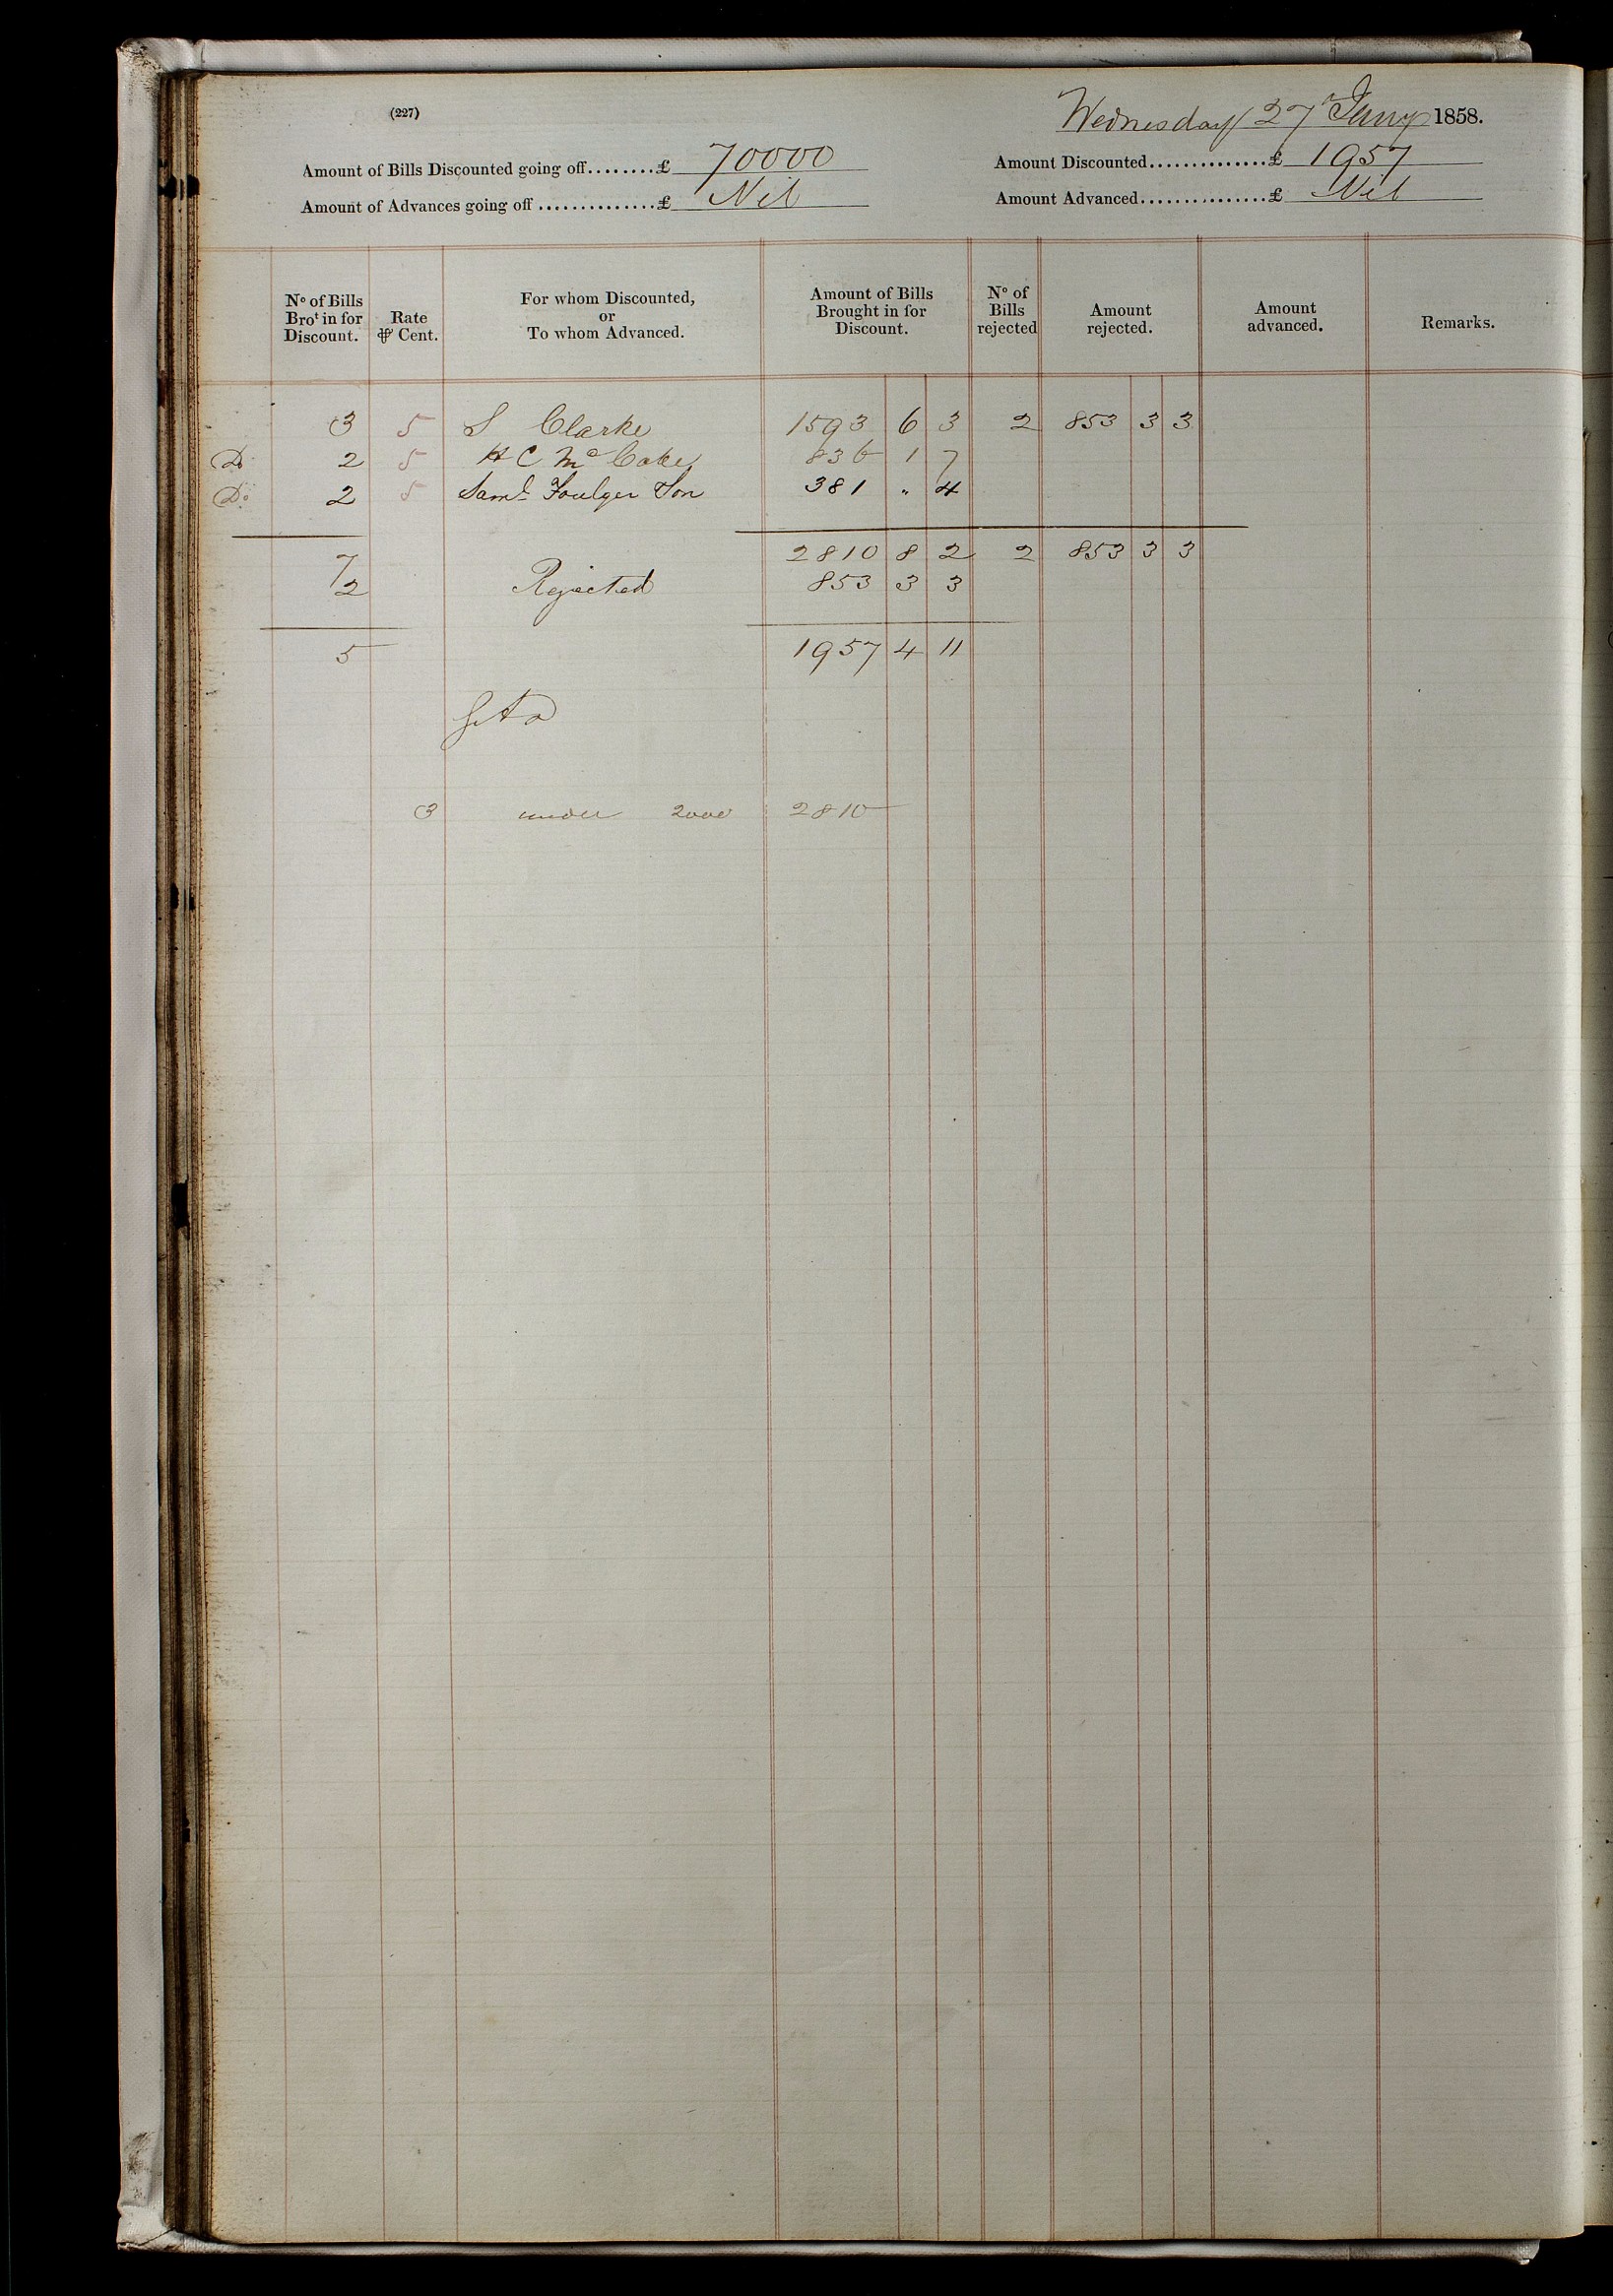 (227)
Wednesday 27 Jany 1858.
Amount of Bills Discounted going off........£ 70000
Amount Discounted..............£ 1957
Amount of Advances going off ..............£ Nil
Amount Advanced...............£ Nil
Nº of Bills Broᵗ in for Discount.
Rate ⅌ Cent.
For whom Discounted, or To whom Advanced.
Amount of Bills Brought in for Discount.
Nº of Bills rejected
Amount rejected.
Amount advanced.
Remarks.
3 5 S Clarke 1593 6 3 2 853 3 3
Dº 2 5 H C Mc 836 1 7
Dº 2 5 Saml Foulger Son 381 " 4
7 2810 8 2 2 853 3 3
2 Rejected 853 3 3
5 1957 4 11
3 under 2000 2810